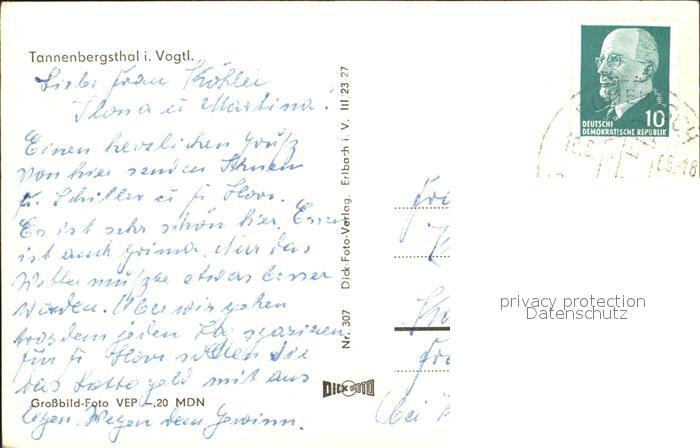 Tannenbergsthal i. Vogtl.
Liebe Frau Köhler
Ilona u Martina!
Einen herzlichen Gruß
von hier senden Ihnen
Fr. Schiller u Fr
Es ist sehr schön hier. Essen
ist auch prima. Nur das
Wetter müßte etwas besser
werden. Aber wir gehen
trotzdem jeden Tag spazieren
Für Fr sollen Sie
das Lottogeld mit aus
legen. Wegen dem Gewinn.
Großbild-Foto VEP —,20 MDN
Nr. 307 Dick-Foto-Verlag, Erlbach i. V. III 23 27
DICK FOTO
DEUTSCHE
DEMOKRATISCHE REPUBLIK
10
privacy protection
Datenschutz
(bei